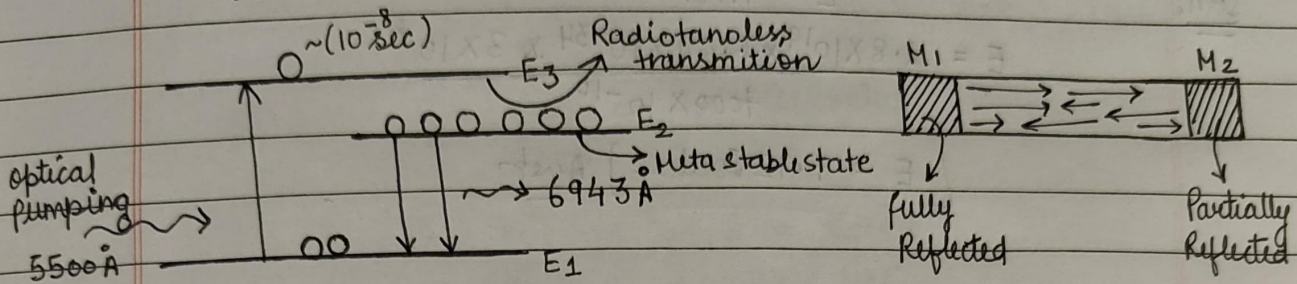 ~(10⁻⁸sec)
Radiotanoless
transmition
E3
E2
Meta stable state
6943Å
optical
pumping
5500Å
E1
M1
M2
fully
Reflected
Partially
Reflected